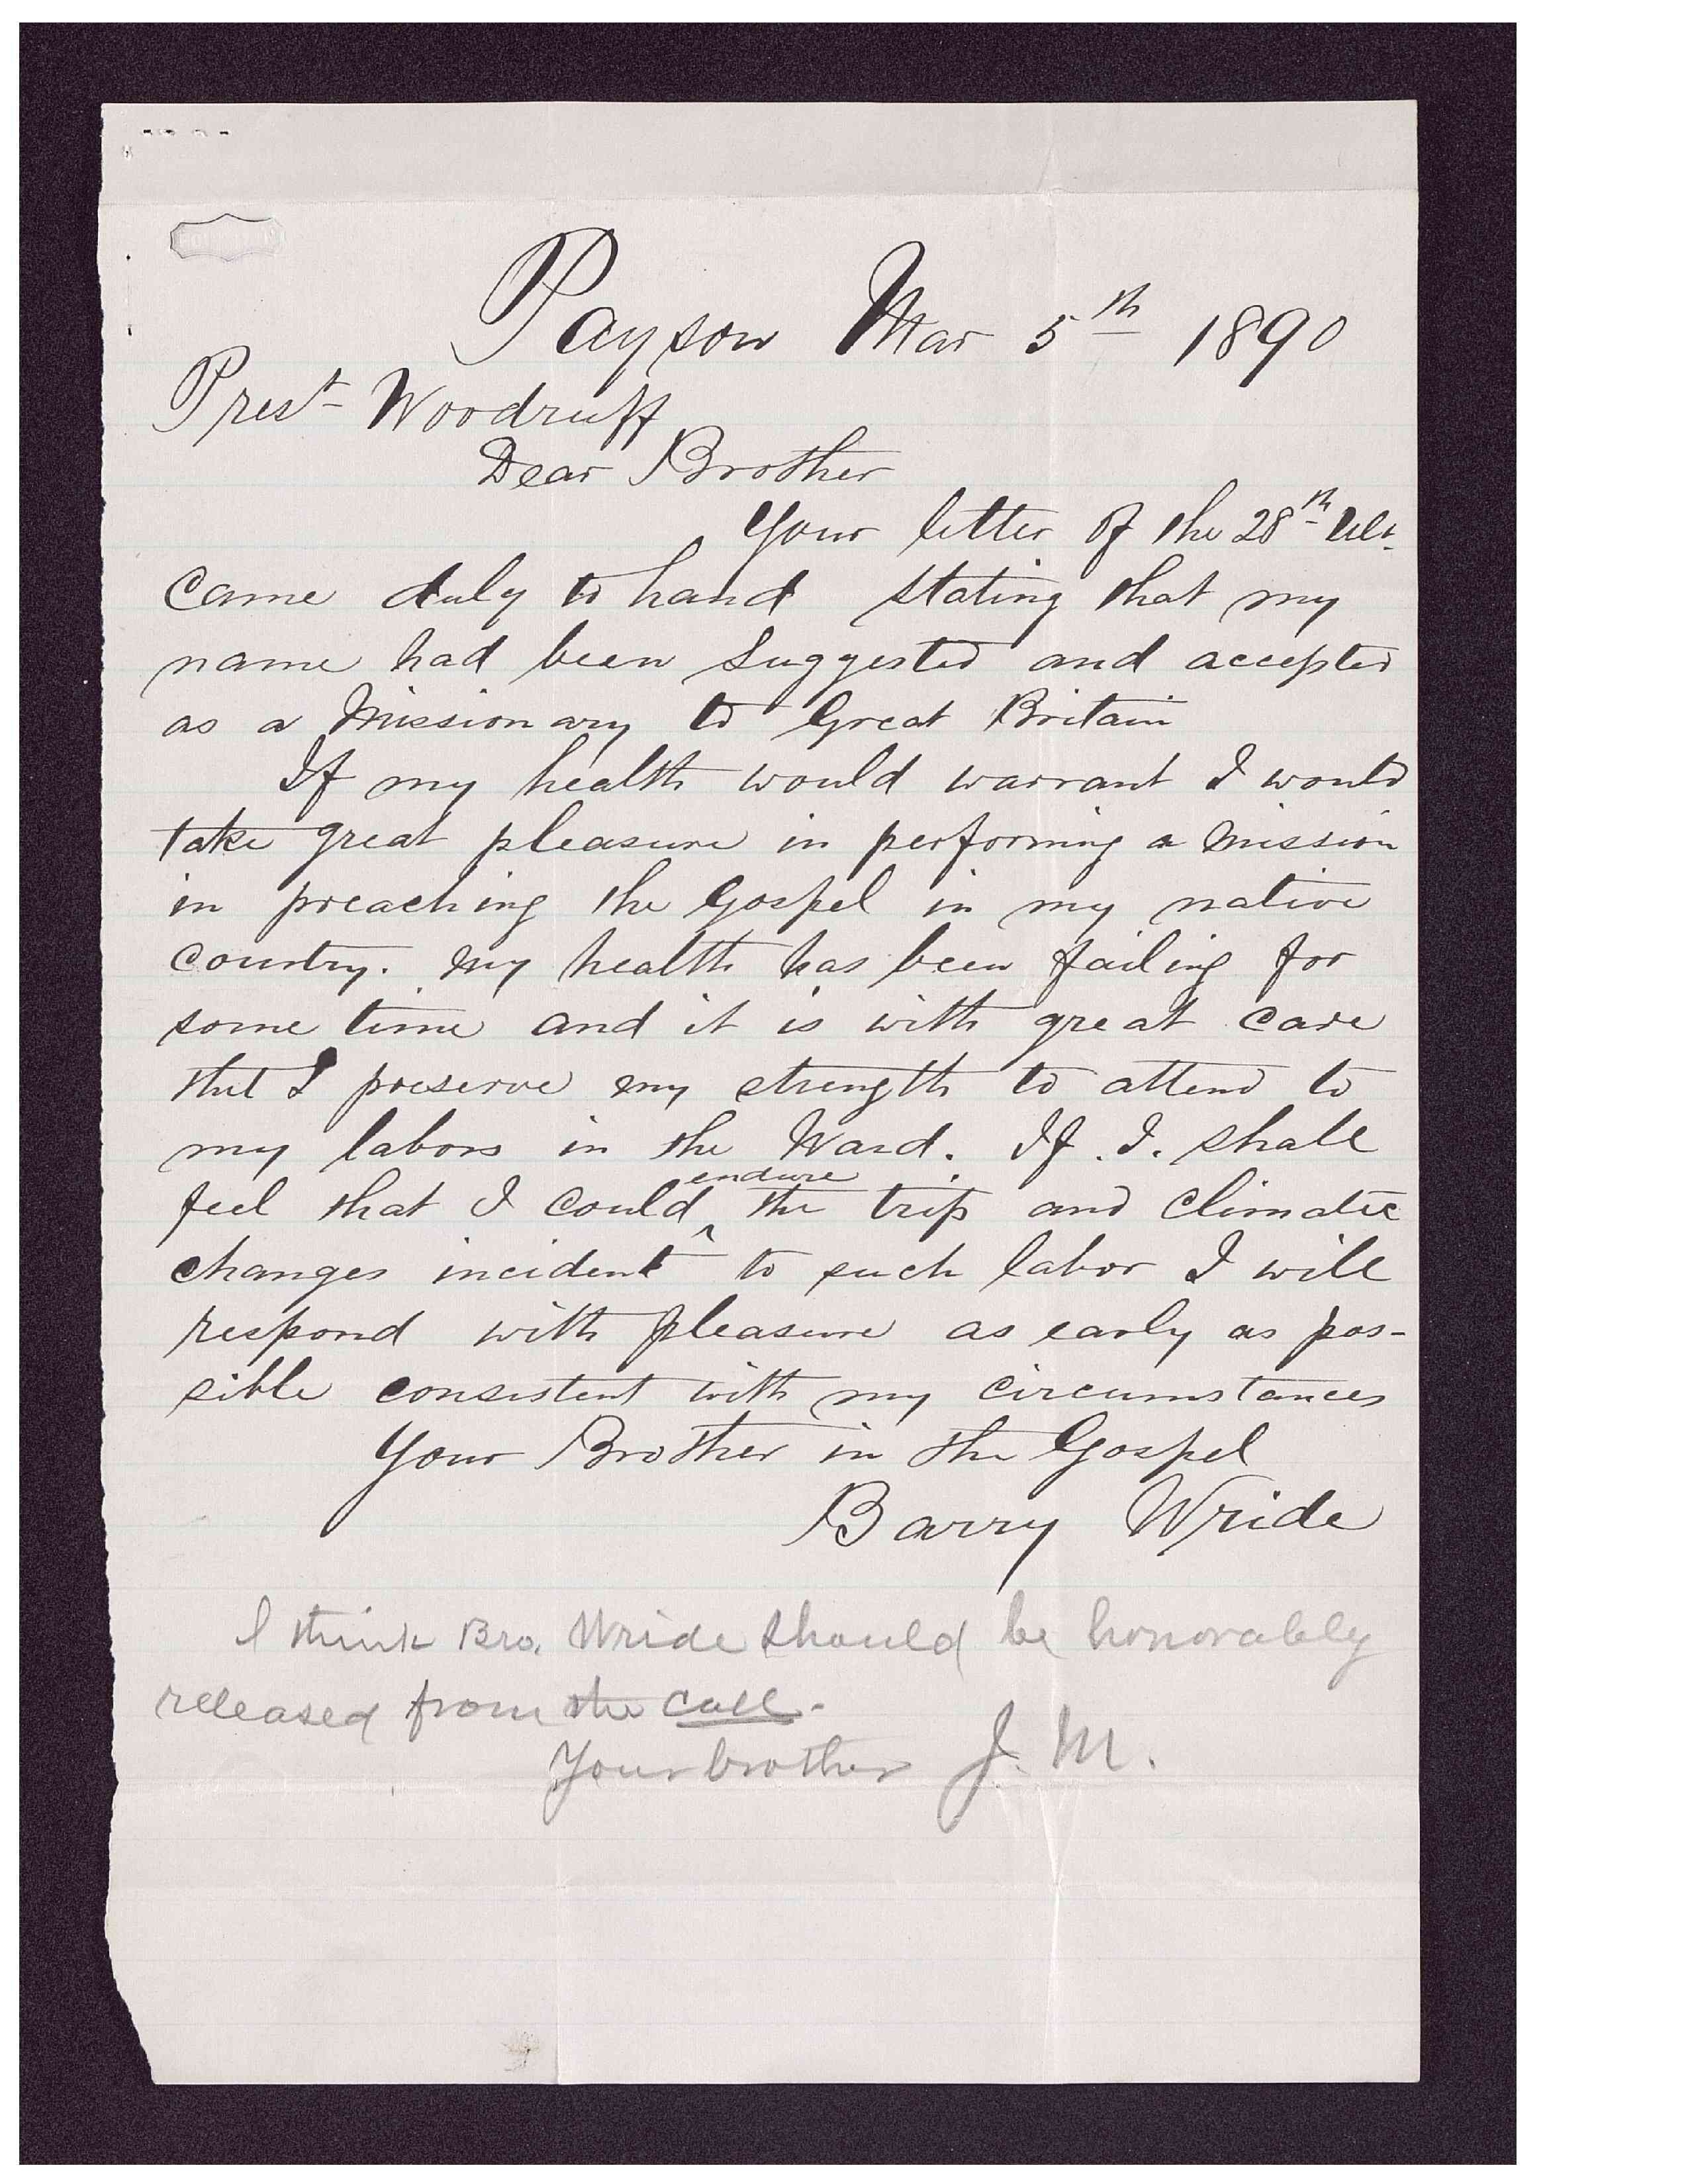 Payson Mar 5th 1890
Prest Woodruff
Dear Brother
Your letter of the 28th Ult.
came duly to hand stating that my
name had been Suggested and accepted
as a Missionary to Great Britain
If my health would warrant I would
take great pleasure in performing a mission
in preaching the Gospel in my native
country. my health has been failing for
some time and it is with great care
that I preserve my strength to attend to
my labors in the Ward. If I shall
feel that I could endure the trip and climatic
changes incident to such labor I will
respond with pleasure as early as pos-
sible consistent with my circumstances
Your Brother in the Gospel
Barry Wride
I think Bro. Wride should be honorably
released from the call.
Your brother J. M.